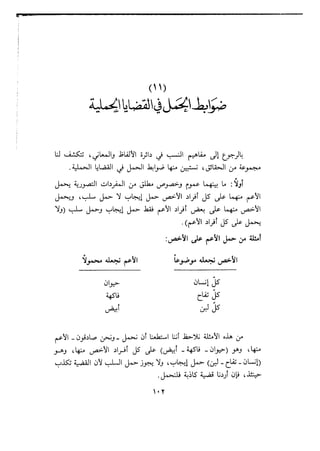 (١١)
ضوابط الحمل في القضايا الحملية
بالرجوع إلى مفاهيم النسب في دائرة الألفاظ والمعاني، تتكشف لنا
مجموعة من الحقائق، نستبين منها ضوابط الحمل في القضايا الحملية.
أولاً: ما بينهما عموم وخصوص مطلق من المفردات التصورية، يحمل
الأعم منهما على كل أفراد الأخص حمل إيجاب لا حمل سلب، ويحمل
الأخص منهما على بعض أفراد الأعم فقط حمل إيجاب وحمل سلب (ولا
يحمل على كل أفراد الأعم).
أمثلة من حمل الأعم على الأخص:
الأخص نجعله موضوعاً الأعم نجعله محمولاً
كل إنسان حيوان
كل تفاح فاكهة
كل لبن أبيض
من هذه الأمثلة نلاحظ أننا استطعنا أن نحمل - ونحن صادقون - الأعم
منها، وهو (حيوان - فاكهة - أبيض) على كل أفراد الأخص منها، وهو
(إنسان - تفاح - لبن) حمل إيجاب، ولا يجوز حمل السلب لأن القضية تكذب
حينئذ، فإن أردنا قضية كاذبة فلنحمل.
١٠٢